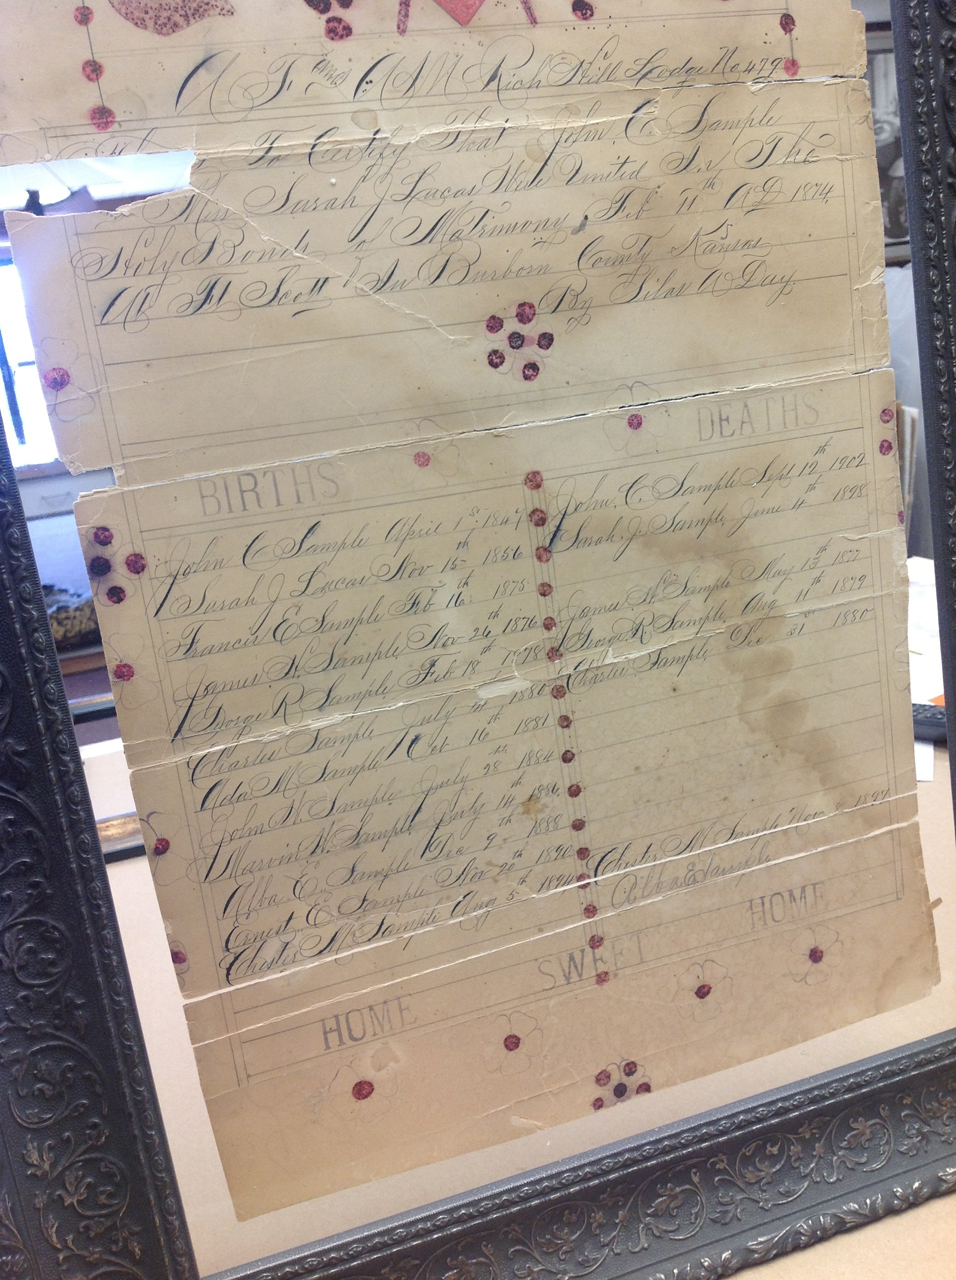 A F and A M Rich Hill Lodge No 479
To Certify That John C. Sample
Miss Sarah J Lucas Were United In The
Holy Bonds of Matrimony, Feb 11th AD 1874,
At Ft Scott In Burborn County Kansas
By Silas A Day
BIRTHS
John C Sample April 1st 1849
Sarah J Lucas Nov 15th 1856
Francis E Sample Feb 16th 1875
James W. Sample, Nov 26th 1876
George R Sample, Feb 18th 1878
Charles Sample July 1880
Ada M Sample, Oct 16th 1881
John W Sample July 28th 1884
Marvin W. Sample, July 14th 1886
Alba C. Sample Dec 9th 1888
Ernest E Sample Nov 20th 1890
Chester M Sample Aug 5th 1894
DEATHS
John. C. Sample Sept 12th 1902
Sarah. J. Sample, June 4th 1898
James W. Sample May 13th 1877
George R Sample Aug 11th 1879
Charles Sample, Dec 31st 1880
Chester M Sample Nov 1894
Alba E Sample
HOME SWEET HOME